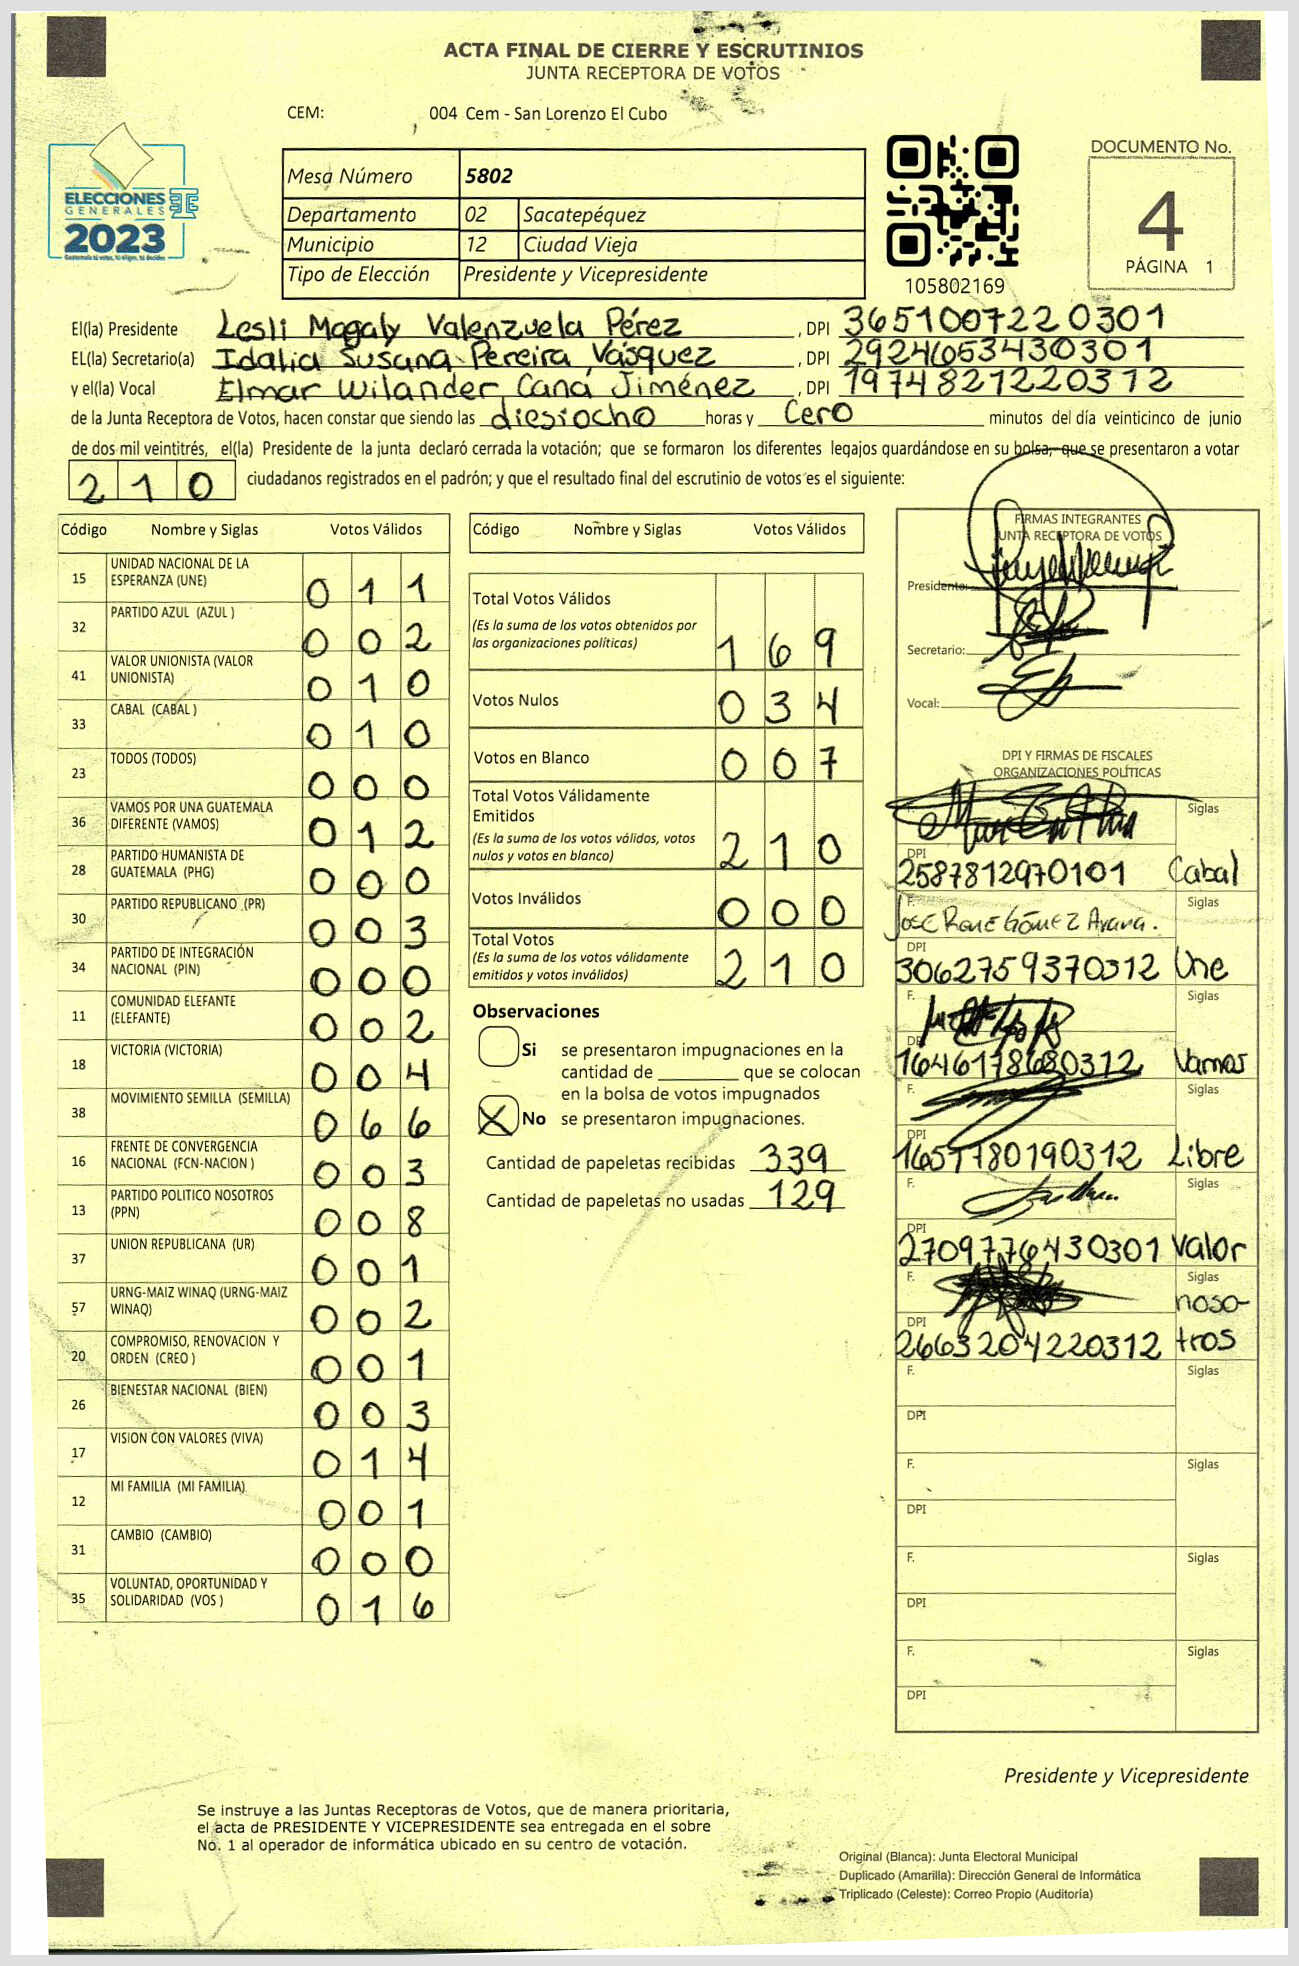 ACTA FINAL DE CIERRE Y ESCRUTINIOS
JUNTA RECEPTORA DE VOTOS
CEM: 004 Cem - San Lorenzo El Cubo
ELECCIONES
GENERALES
2023
Guatemala tú votas, tú eliges, tú decides
Mesa Número 5802
Departamento 02 Sacatepéquez
Municipio 12 Ciudad Vieja
Tipo de Elección Presidente y Vicepresidente
105802169
DOCUMENTO No.
4
PÁGINA 1
El(la) Presidente Lesli Magaly Valenzuela Pérez, DPI 3651007220301
EL(la) Secretario(a) Idalia Susana Pereira Vásquez, DPI 2924653430301
y el(la) Vocal Elmar Wilander Caná Jiménez, DPI 1974821220312
de la Junta Receptora de Votos, hacen constar que siendo las diesiocho horas y Cero minutos del día veinticinco de junio
de dos mil veintitrés, el(la) Presidente de la junta declaró cerrada la votación; que se formaron los diferentes legajos guardándose en su bolsa, que se presentaron a votar
210 ciudadanos registrados en el padrón; y que el resultado final del escrutinio de votos es el siguiente:
Código Nombre y Siglas Votos Válidos
15 UNIDAD NACIONAL DE LA ESPERANZA (UNE) 011
32 PARTIDO AZUL (AZUL ) 002
41 VALOR UNIONISTA (VALOR UNIONISTA) 010
33 CABAL (CABAL ) 010
23 TODOS (TODOS) 000
36 VAMOS POR UNA GUATEMALA DIFERENTE (VAMOS) 012
28 PARTIDO HUMANISTA DE GUATEMALA (PHG) 000
30 PARTIDO REPUBLICANO (PR) 003
34 PARTIDO DE INTEGRACIÓN NACIONAL (PIN) 000
11 COMUNIDAD ELEFANTE (ELEFANTE) 002
18 VICTORIA (VICTORIA) 004
38 MOVIMIENTO SEMILLA (SEMILLA) 066
16 FRENTE DE CONVERGENCIA NACIONAL (FCN-NACION ) 003
13 PARTIDO POLITICO NOSOTROS (PPN) 008
37 UNION REPUBLICANA (UR) 001
57 URNG-MAIZ WINAQ (URNG-MAIZ WINAQ) 002
20 COMPROMISO, RENOVACION Y ORDEN (CREO ) 001
26 BIENESTAR NACIONAL (BIEN) 003
17 VISION CON VALORES (VIVA) 014
12 MI FAMILIA (MI FAMILIA) 001
31 CAMBIO (CAMBIO) 000
35 VOLUNTAD, OPORTUNIDAD Y SOLIDARIDAD (VOS ) 016
Código Nombre y Siglas Votos Válidos
Total Votos Válidos
(Es la suma de los votos obtenidos por las organizaciones políticas) 169
Votos Nulos 034
Votos en Blanco 007
Total Votos Válidamente Emitidos
(Es la suma de los votos válidos, votos nulos y votos en blanco) 210
Votos Inválidos 000
Total Votos
(Es la suma de los votos válidamente emitidos y votos inválidos) 210
Observaciones
Si se presentaron impugnaciones en la
cantidad de ________ que se colocan
en la bolsa de votos impugnados
X No se presentaron impugnaciones.
Cantidad de papeletas recibidas 339
Cantidad de papeletas no usadas 129
FIRMAS INTEGRANTES
JUNTA RECEPTORA DE VOTOS
Presidente:
Secretario:
Vocal:
DPI Y FIRMAS DE FISCALES
ORGANIZACIONES POLÍTICAS
Siglas
DPI
2587812970101 Cabal
F. Siglas
Jose Rene Gómez Arana.
DPI
3062759370312 Une
F. Siglas
DPI
1646178680312 Vamos
F. Siglas
DPI
1657780190312 Libre
F. Siglas
DPI
2709776430301 Valor
F. Siglas
noso-
DPI
2663204220312 tros
F. Siglas
DPI
F. Siglas
DPI
F. Siglas
DPI
F. Siglas
DPI
Presidente y Vicepresidente
Se instruye a las Juntas Receptoras de Votos, que de manera prioritaria,
el acta de PRESIDENTE Y VICEPRESIDENTE sea entregada en el sobre
No. 1 al operador de informática ubicado en su centro de votación.
Original (Blanca): Junta Electoral Municipal
Duplicado (Amarilla): Dirección General de Informática
Triplicado (Celeste): Correo Propio (Auditoría)